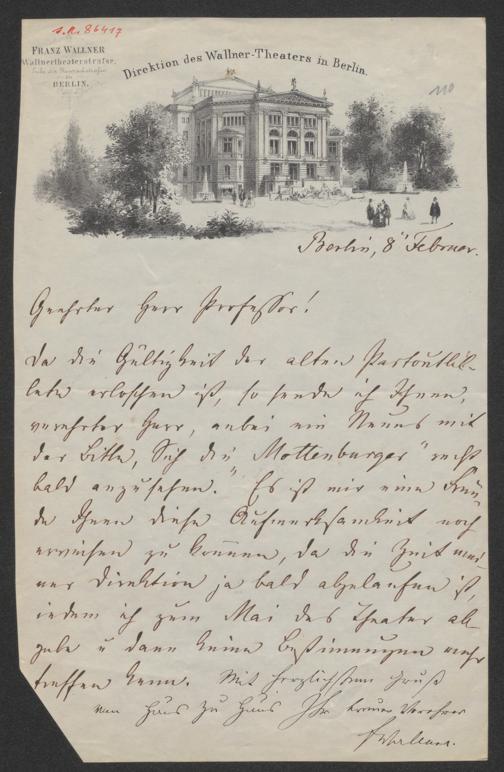 s. Nr. 86417
FRANZ WALLNER
Wallnertheaterstrafse,
Ecke der
BERLIN.
Direktion des Wallner-Theaters in Berlin.
110
Berlin, 8ᵗ Februar.
Geehrter Herr Professor!
Da die Gültigkeit der alten Partoutbil-
lete erloschen ist, so sende ich Ihnen,
verehrter Herr, anbei ein Neues mit
der Bitte, Sich die „Mottenburger" recht
bald anzusehen. Es ist mir eine Freu-
de Ihnen diese Aufmerksamkeit noch
erweisen zu können, da die Zeit mei-
ner Direktion ja bald abgelaufen ist,
indem ich zum Mai das Theater ab-
gebe u dann keine Bestimmungen mehr
treffen kann. Mit herzlichstem Gruß
von Haus zu Haus Ihr treuer Verehrer
FWallner.